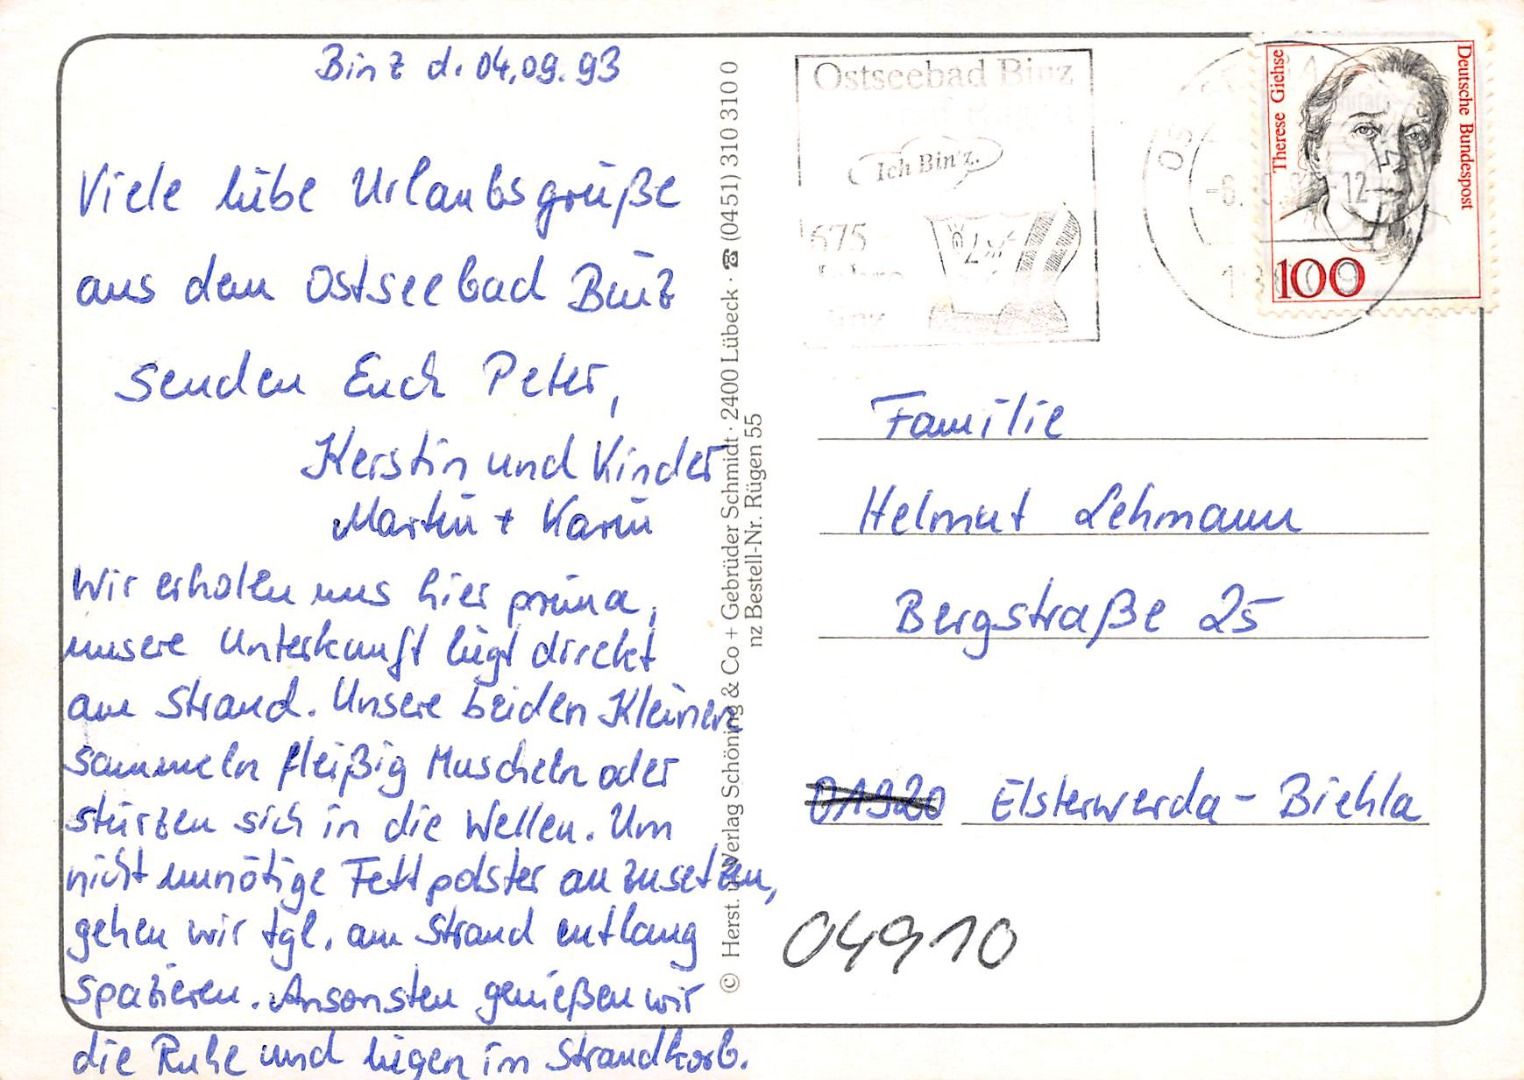 Binz d. 04.09.93
Viele liebe Urlaubsgrüße
aus dem Ostseebad Binz
senden Euch Peter,
Kerstin und Kinder
Martin + Karin
Wir erholen uns hier prima,
unsere Unterkunft liegt direkt
am Strand. Unsere beiden Kleinen
sammeln fleißig Muscheln oder
stürzen sich in die Wellen. Um
nicht unnötige Fettpolster anzusetzen,
gehen wir tgl. am Strand entlang
spazieren. Ansonsten genießen wir
die Ruhe und liegen im Strandkorb.
© Herst. u. Verlag Schöning & Co + Gebrüder Schmidt · 2400 Lübeck · ☎ (0451) 310 310 0
nz Bestell-Nr. Rügen 55
Ostseebad Binz
Ich Bin'z.
675
Therese Giehse
Deutsche Bundespost
100
Familie
Helmut Lehmann
Bergstraße 25
Elsterwerda - Biehla
04910